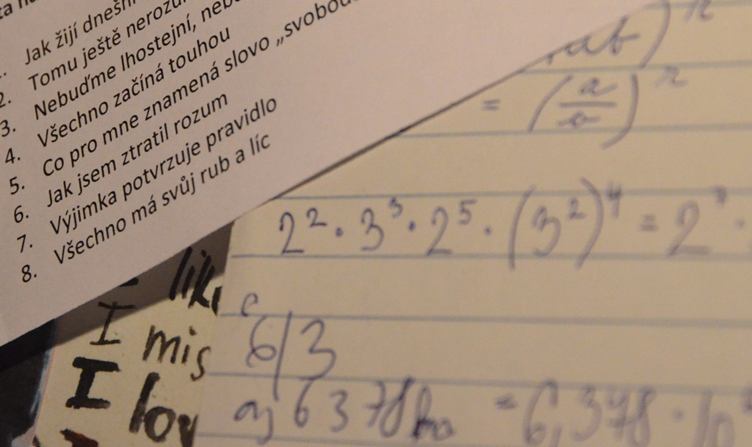 Jak žijí dnešní
2. Tomu ještě nerozu
3. Nebuďme lhostejní, neb
4. Všechno začíná touhou
5. Co pro mne znamená slovo „svobod
6. Jak jsem ztratil rozum
7. Výjimka potvrzuje pravidlo
8. Všechno má svůj rub a líc
= (a/b)^r
2² · 3³ · 2⁵ · (3²)⁴ = 2⁷ ·
6/3
a) 6378 km = 6,378 · 10
I mis
I lov